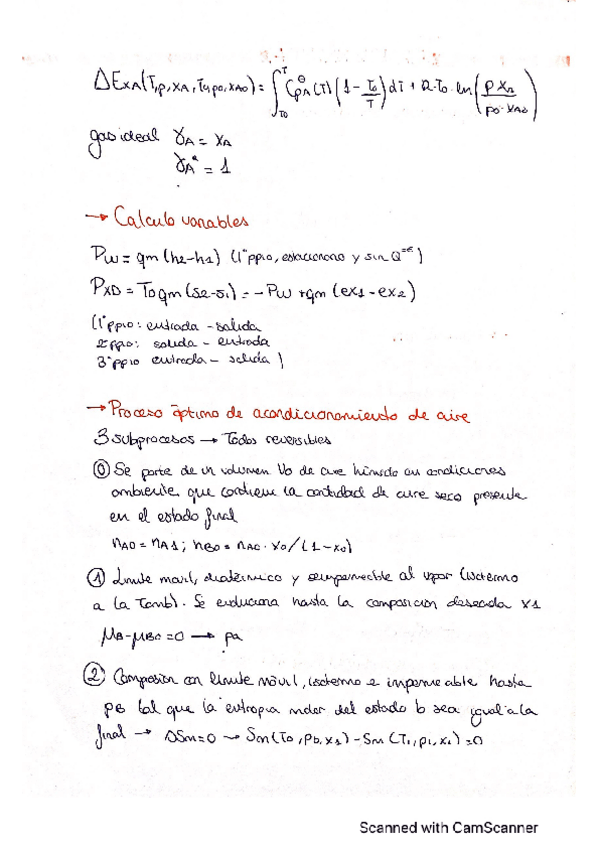 ΔExA(T,p,xA,T0,p0,xA0) = ∫T0^T C°pA(T) (1 - T0/T) dT + R·T0·ln(p xA / p0·xA0)
gas ideal γA = xA
γA* = 1
→ Calculo variables
PW = qm (h2-h1) (1º ppio, estacionario y sin Q)
PXD = T0 qm (s2-s1) = -PW + qm (ex1-ex2)
(1º ppio: entrada - salida
2º ppio: salida - entrada
3º ppio entrada - salida)
→ Proceso óptimo de acondicionamiento de aire
3 subprocesos → Todos reversibles
⓪ Se parte de un volumen V0 de aire húmedo en condiciones
ambiente, que contiene la cantidad de aire seco presente
en el estado final
nA0 = nA1; nB0 = nA0 · x0/(1-x0)
① Límite movil, diatérmico y semipermeable al vapor (isotermo
a la Tamb). Se evoluciona hasta la composicion deseada x1
μB-μB0 = 0 → pa
② Compresion con límite móvil, isotermo e impermeable hasta
pb tal que la entropia molar del estado b sea igual a la
final → ΔSm=0 → Sm(T0, pb, x1) - Sm(T1, p1, x1) = 0
Scanned with CamScanner